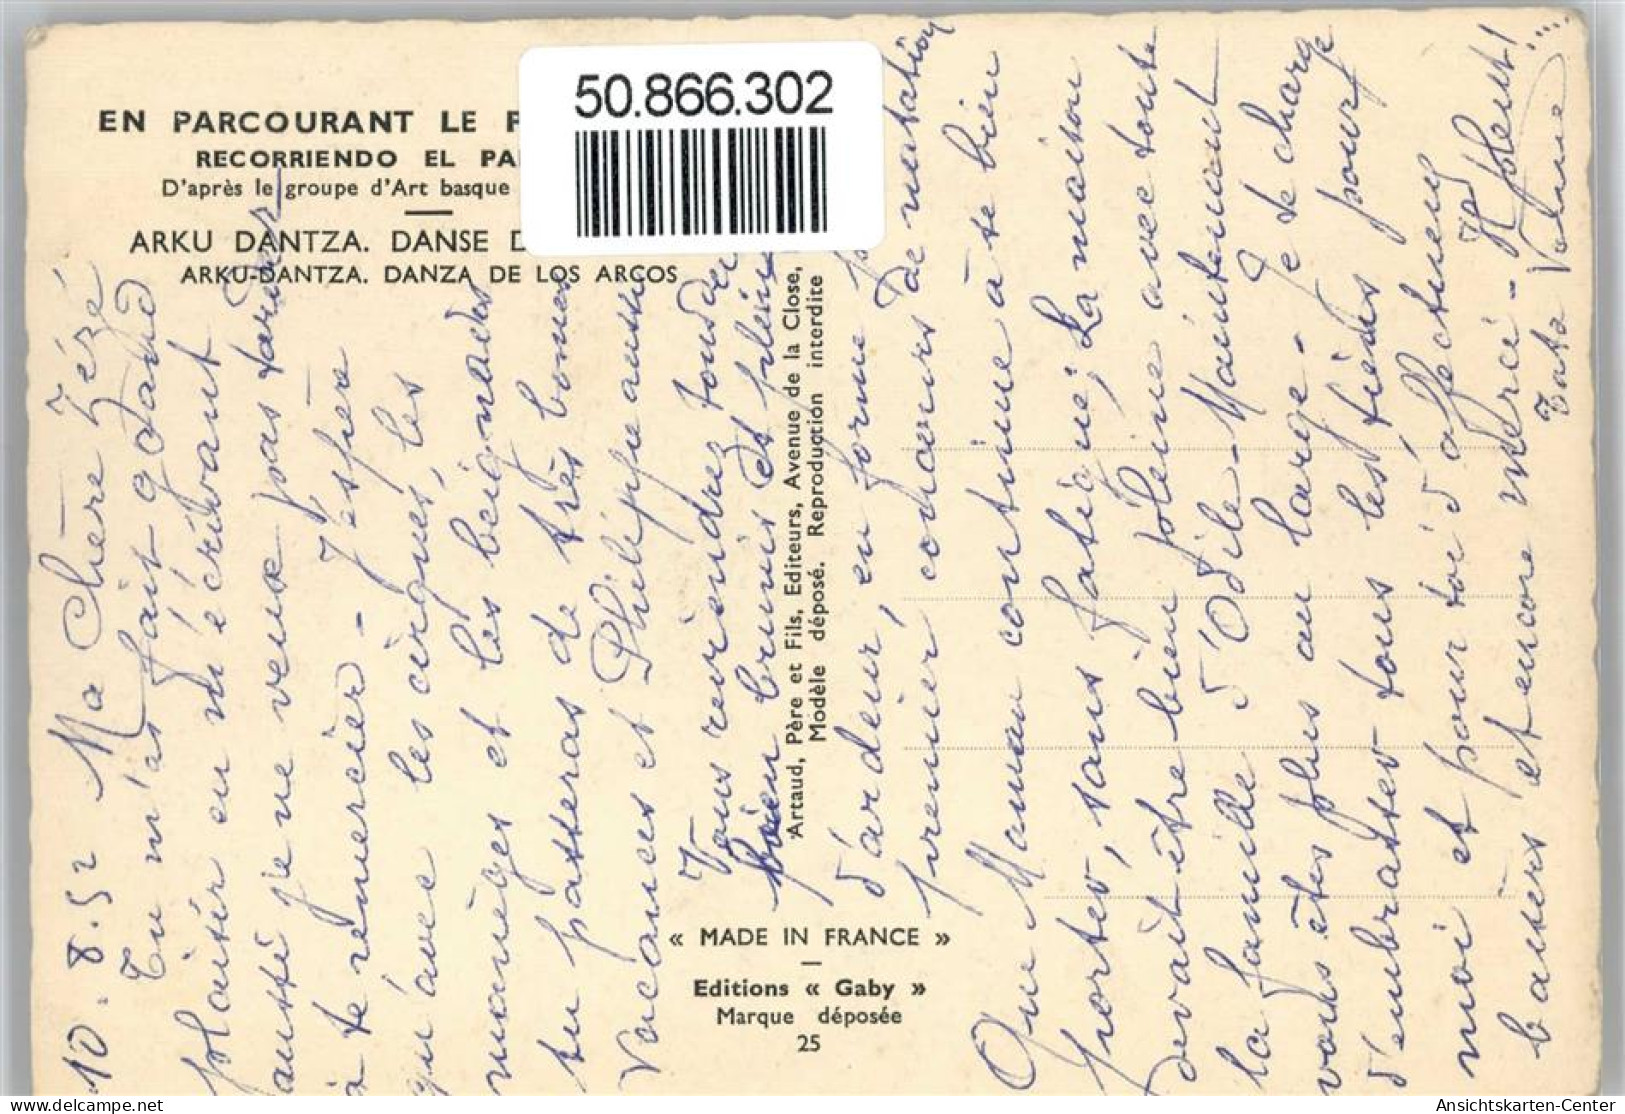 EN PARCOURANT LE
RECORRIENDO EL
D'après le groupe d'Art basque
ARKU DANTZA. DANSE
ARKU-DANTZA. DANZA DE LOS ARCOS
50.866.302
10.8.52 Ma Chère Zézé
Tu m'as fait grand
plaisir en m'écrivant
aussi je ne veux pas tarder
à te remercier - J'espère
qu'avec les cirques, les
manèges et les beignades
tu passeras de très bonnes
vacances et Philippe aussi
Vous reviendrez tous deux
bien brunis et pleins
d'ardeur, en forme
premier, concours de natation
Artaud, Père et Fils, Editeurs, Avenue de la Close,
Modèle déposé. Reproduction interdite
« MADE IN FRANCE »
Editions « Gaby »
Marque déposée
25
Que Maman continue à te bien
porter, sans fatigue; La maison
devait être bien pleine avec toute
la famille d'Odile - Maintenant
vous êtes plus au large - Je te charge
d'embrasser tous les tiens pour
moi et pour toi d'affectueux
baisers et encore merci -
Tata
Ansichtskarten-Center